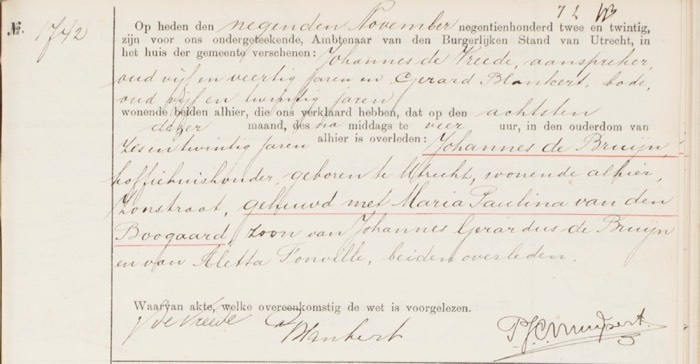 №. 1742
Op heden den negenden November negentienhonderd twee en twintig,
zijn voor ons ondergeteekende, Ambtenaar van den Burgerlijken Stand van Utrecht, in
het huis der gemeente verschenen: Johannes de Vreede, aanspreker,
oud vijf en veertig jaren en Gerard Blankert, bode,
oud vijf en twintig jaren
wonende beiden alhier, die ons verklaard hebben, dat op den achtsten
dezer maand, des na middags te vier uur, in den ouderdom van
zes en twintig jaren alhier is overleden: Johannes de Bruijn,
koffiehuishouder, geboren te Utrecht, wonende alhier,
Zonstraat, gehuwd met Maria Paulina van den
Boogaard, zoon van Johannes Gerardus de Bruijn
en van Aletta Fonville, beiden overleden.
Waarvan akte, welke overeenkomstig de wet is voorgelezen.
J de Vreede G Blankert